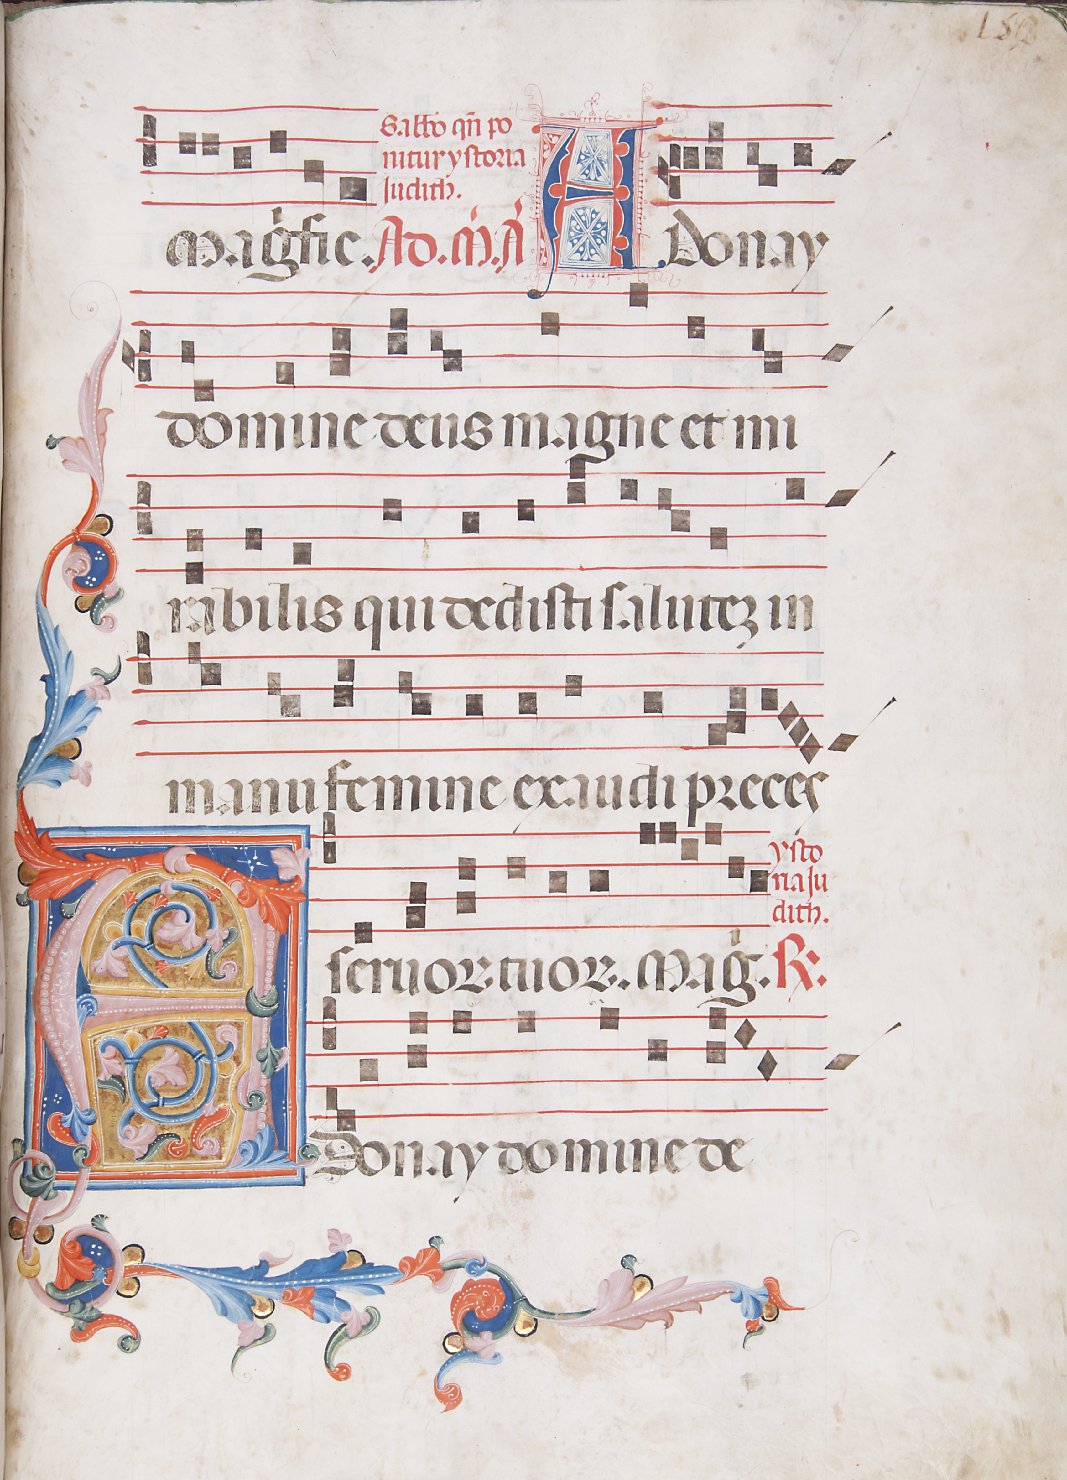 Sabbo qñ po
nitur ystoria
Judith.
Magfic. Ad. M. A Adonay
domine deus magne et mi
rabilis qui dedisti salutez in
manu femine exaudi preces
ysto
ria Ju
dith.
seruor tuor. Mag. R.
Adonay domine de